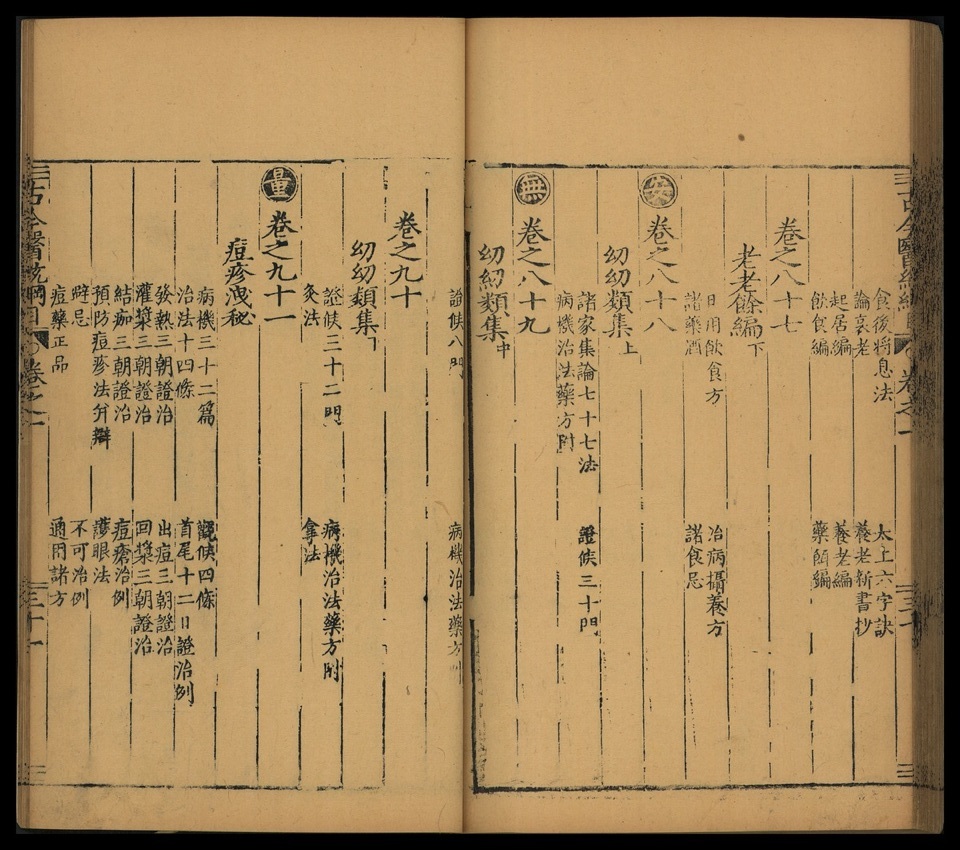 食後將息法 太上六字訣
論衰老 養老新書抄
起居編 養老編
飲食編 藥餌編
卷之八十七
老老餘編下
日用飲食方 治病攝養方
諸藥酒 諸食忌
卷之八十八
幼幼類集上
諸家集論七十七法 證候三十門
病機治法藥方附
無 卷之八十九
幼幼類集中
證候八門 病機治法藥方附
卷之九十
幼幼類集下
證候三十二門 病機治法藥方附
灸法 拿法
量 卷之九十一
痘疹洩秘
病機三十二篇 觀候四條
治法十四條 首尾十二日證治例
發熱三朝證治 出痘三朝證治
灌漿三朝證治 回漿三朝證治
結痂三朝證治 痘瘡治例
預防痘疹法并辯 護眼法
辟忌 不可治例
痘藥正品 通用諸方
古今醫統綱目 卷之一 三十一